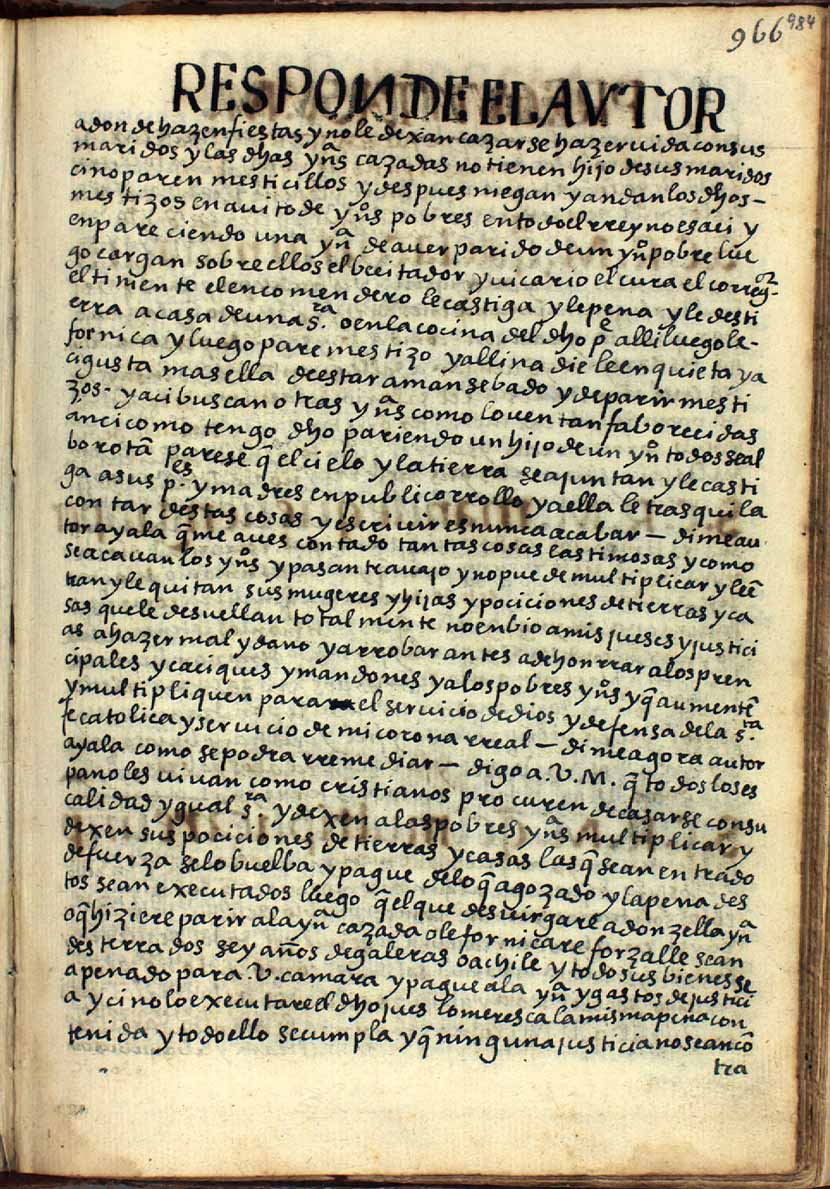 966 984
RESPONDE EL AVTOR
adonde hazen fiestas y no le dexan cazarse hazer uida con sus
maridos y las dhas yn̄s cazadas no tienen hijo de sus maridos
cino paren mesticillos y despues niegan y andan los dhos –
mestizos en auito de yn̄os pobres en todo el rreyno es aci y
en pareciendo una yn̄a de auer parido de un yn̄o pobre lue
go cargan sobre ellos el becitador y uicario el cura el correg.or
el tiniente el encomendero le castiga y le pena y le desti
erra a casa de una s.ra o en la cocina del dho pe alli luego le –
fornica y luego pare mestizo y alli nadie le enquieta ya
ci gusta mas ella de estar amansebado y de parir mesti
zos. y aci buscan otras yn̄as como lo uen tan faborecidas
anci como tengo dho pariendo un hijo de un yn̄o todos se al
borotā parese q̄ el cielo y la tierra se ajuntan y le casti
ga a sus p.es y madres en publico rrollo y a ella le trasquila
contar destas cosas y escriuir es nunca acabar – dime au
tor ayala q̄ me aues contado tantas cosas lastimosas y como
se acauan los yn̄os y pasan trauajo y no puede multiplicar y le ē
tran y le quitan sus mugeres y hijas y pociciones de tierras y ca
sas que le desuellan totalmente no enbio a mis jueses y justici
as a hazer mal y dano y a rrobar antes a de honrrar a los pren
cipales y caciques y mandones y a los pobres yn̄os y q̄ aumentē
y multipliquen para el seruicio de dios y defensa de la s.ta
fe catolica y seruicio de mi corona rreal – dime agora autor
ayala como se podra rremediar – digo a. V. M. q̄ todos los es
panoles uiuan como cristianos procuren de casarse con su
calidad ygual s.ra y dexen a las pobres yn̄as multiplicar y
dexen sus pociciones de tierras y casas las q̄ sean entrado
de fuerza se lo buelba y pague de lo q̄ a gozado y la pena des
tos sean executados luego q̄ el que desuirgare a donzella yn̄a
o q̄ hiziere parir a la yn̄a cazada o le fornicare forzalle sean
desterrados sey anōs de galeras o a chile y todo sus bienes se
apenado para .V. camara y pague a la yn̄a y gastos de justici
a y ci no lo executare el dho jues lo meresca la misma pena con
tenida y todo ello se cumpla y q̄ ninguna justicia no sean cō
tra